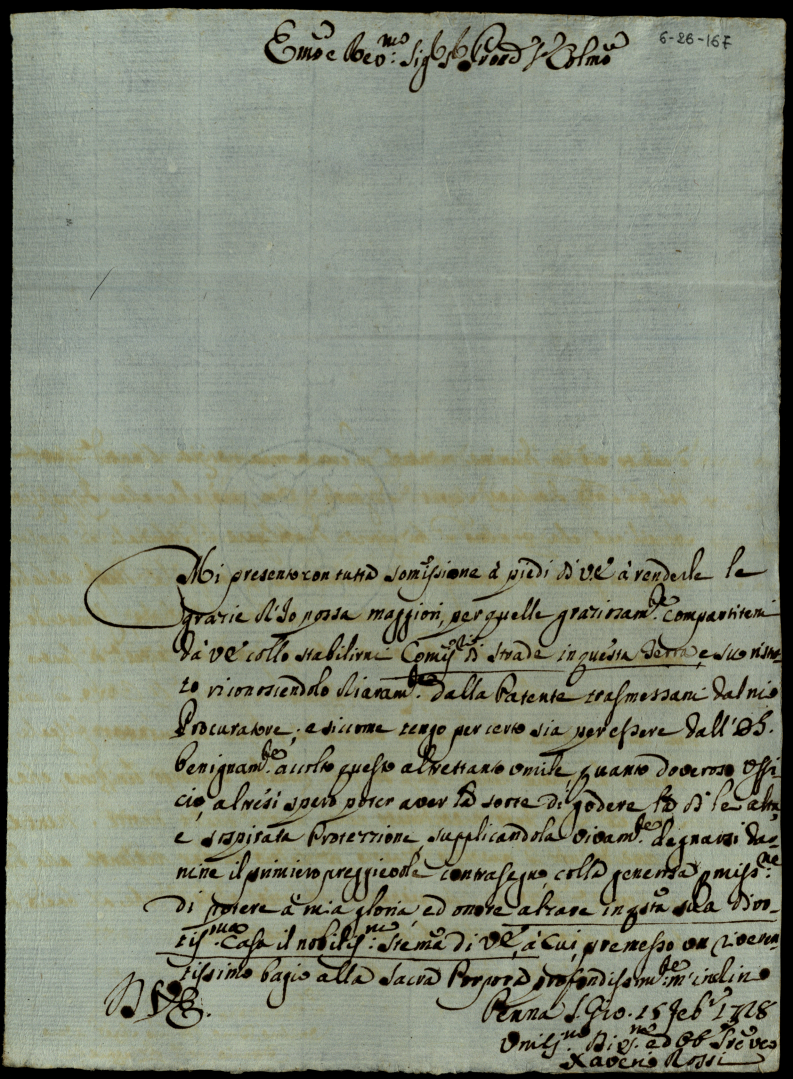 Em̃o e Rev.mo Sig.r Sig.r Prõn Colmo
6-26-167
Mi presento con tutta somissione à piedi di VE à renderle le
grazie ch'Io possa maggiori, per quelle graziosam.te compartitemi
da VE collo stabilirmi Comis.rio di strade in questa Terra, e suo ristret-
to riconoscendolo chiaram.te dalla Patente trasmessami dal mio
Procuratore; e siccome tengo per certo sia per essere dall'
benignam.te accolto questo altrettanto umile, quanto doveroso uffi
cio, altresi spero poter aver la sorte di godere la di lei alta,
e sospirata Protezzione, supplicandola vivam.te degnarsi dar-
mene il primiero preggievole contrasegno colla generosa pmiss.ne
di potere à mia gloria, ed onore alzare in q̃sta sua divo-
tis.ma Casa il nobilis.mo Stema di VE, à cui, premesso un riveren
tissimo bagio alla Sacra Porpora profondissim.te m'inclino
Penna S. Gio. 15 Feb.o 1728
Umilis.mo Di.mo ed Ob. Serv.e
Xaverio Rossi